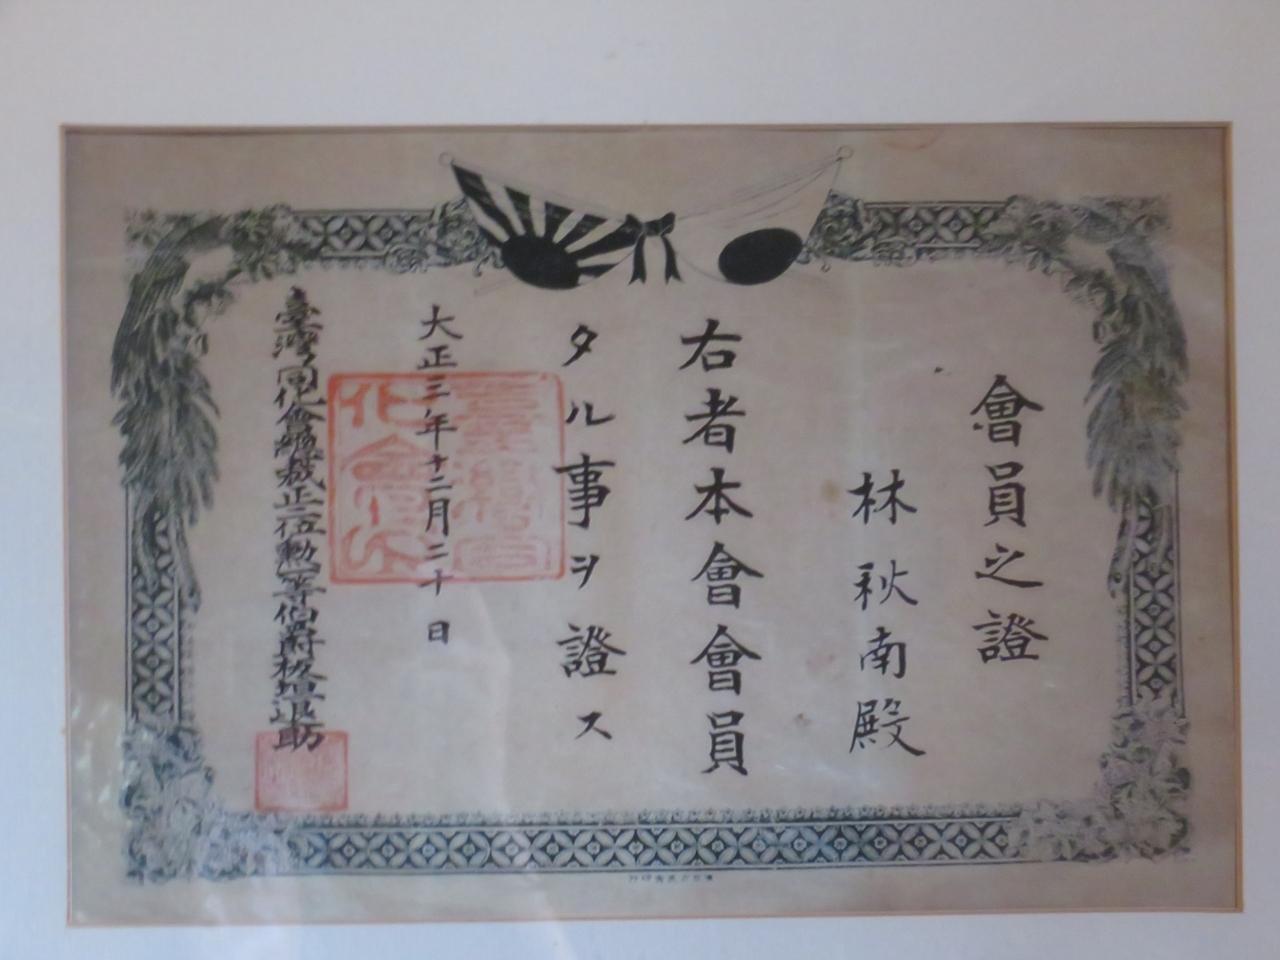 會員之證
林秋南殿
右者本會會員
タル事ヲ證ス
大正三年十二月二十日
臺灣同化會總裁正二位勲一等伯爵板垣退助